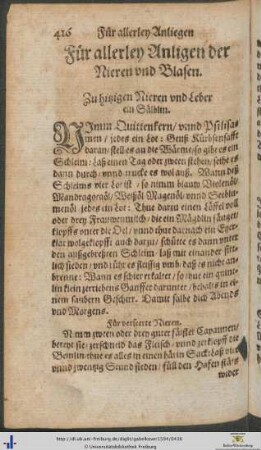 416 Für allerley Anliegen
Für allerley Anligen der
Nieren vnd Blasen.
Zu hitzigen Nieren vnd Leber
ein Sälblin.
NImm Quittenkern / vnnd Psilisa
men / jedes ein Lot: Geuß Kürbsensafft
daran / stell es an die Wärme / so gibt es ein
Schleim: Laß einen Tag oder zween stehen / seihe es
dann durch / vnnd trucke es wol auß. Wann deß
Schleims vier Lot ist / so nimm blauw Violenöl /
Mandragoröl / Weißöl Magenöl / vnnd Seeblu-
menöl jedes ein Lot: Thue darzu einen Löffel voll
oder drey Frauwenmilch / die ein Mägdlin säuget /
klopffs vnter die Oel / vnnd thue darnach ein Eyer-
klar wolgeklopfft auch darzu / schütte es dann vnter
den außgebreyten Schleim / laß mit einander sitt-
lich sieden / vnd rühr es fleissig vmb / daß es nicht an-
brenne: Wann es schier erkaltet / so thue ein quint-
lin klein zerriebens Ganffer darunter / behalts in ei-
nem saubern Geschirr. Damit salbe dich Abends
vnd Morgens.
Für versehrte Nieren.
Nimm zween oder drey guter fäißter Capaunen /
bereyt sie / zerschneid das Fleisch / vnnd zerklopff die
Beinlin / thue es alles in einen härin Sack: Laß vier
vnnd zwentzig Stund sieden / füll den Hafen stäts
wider
http://dl.ub.uni-freiburg.de/diglit/gabelkover1594/0436
© Universitätsbibliothek Freiburg